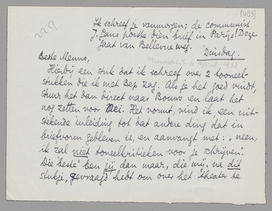 Ik schreef je vanmorgen; de communist
J. Gans postte dien brief in Parijs! Deze
gaat van Bellevue weg.
Dinsdag.
Beste Menno,
Hierbij een stuk dat ik schreef over 2 tooneel-
stukken die ik met Bep zag. Als je het goed vindt,
stuur het dan direct naar Bouws en laat het
nog zetten voor Mei. Het vormt, vind ik, een uit-
stekende inleiding tot dat andre ding dat in
briefvorm gebleven is, en aanvangt met: "neen,
ik zal niet tooneelkritieken voor je schrijven".
Die "beste" ben jij dan maar, die mij, na dit
stukje, gevraagd hebt om over het theater te